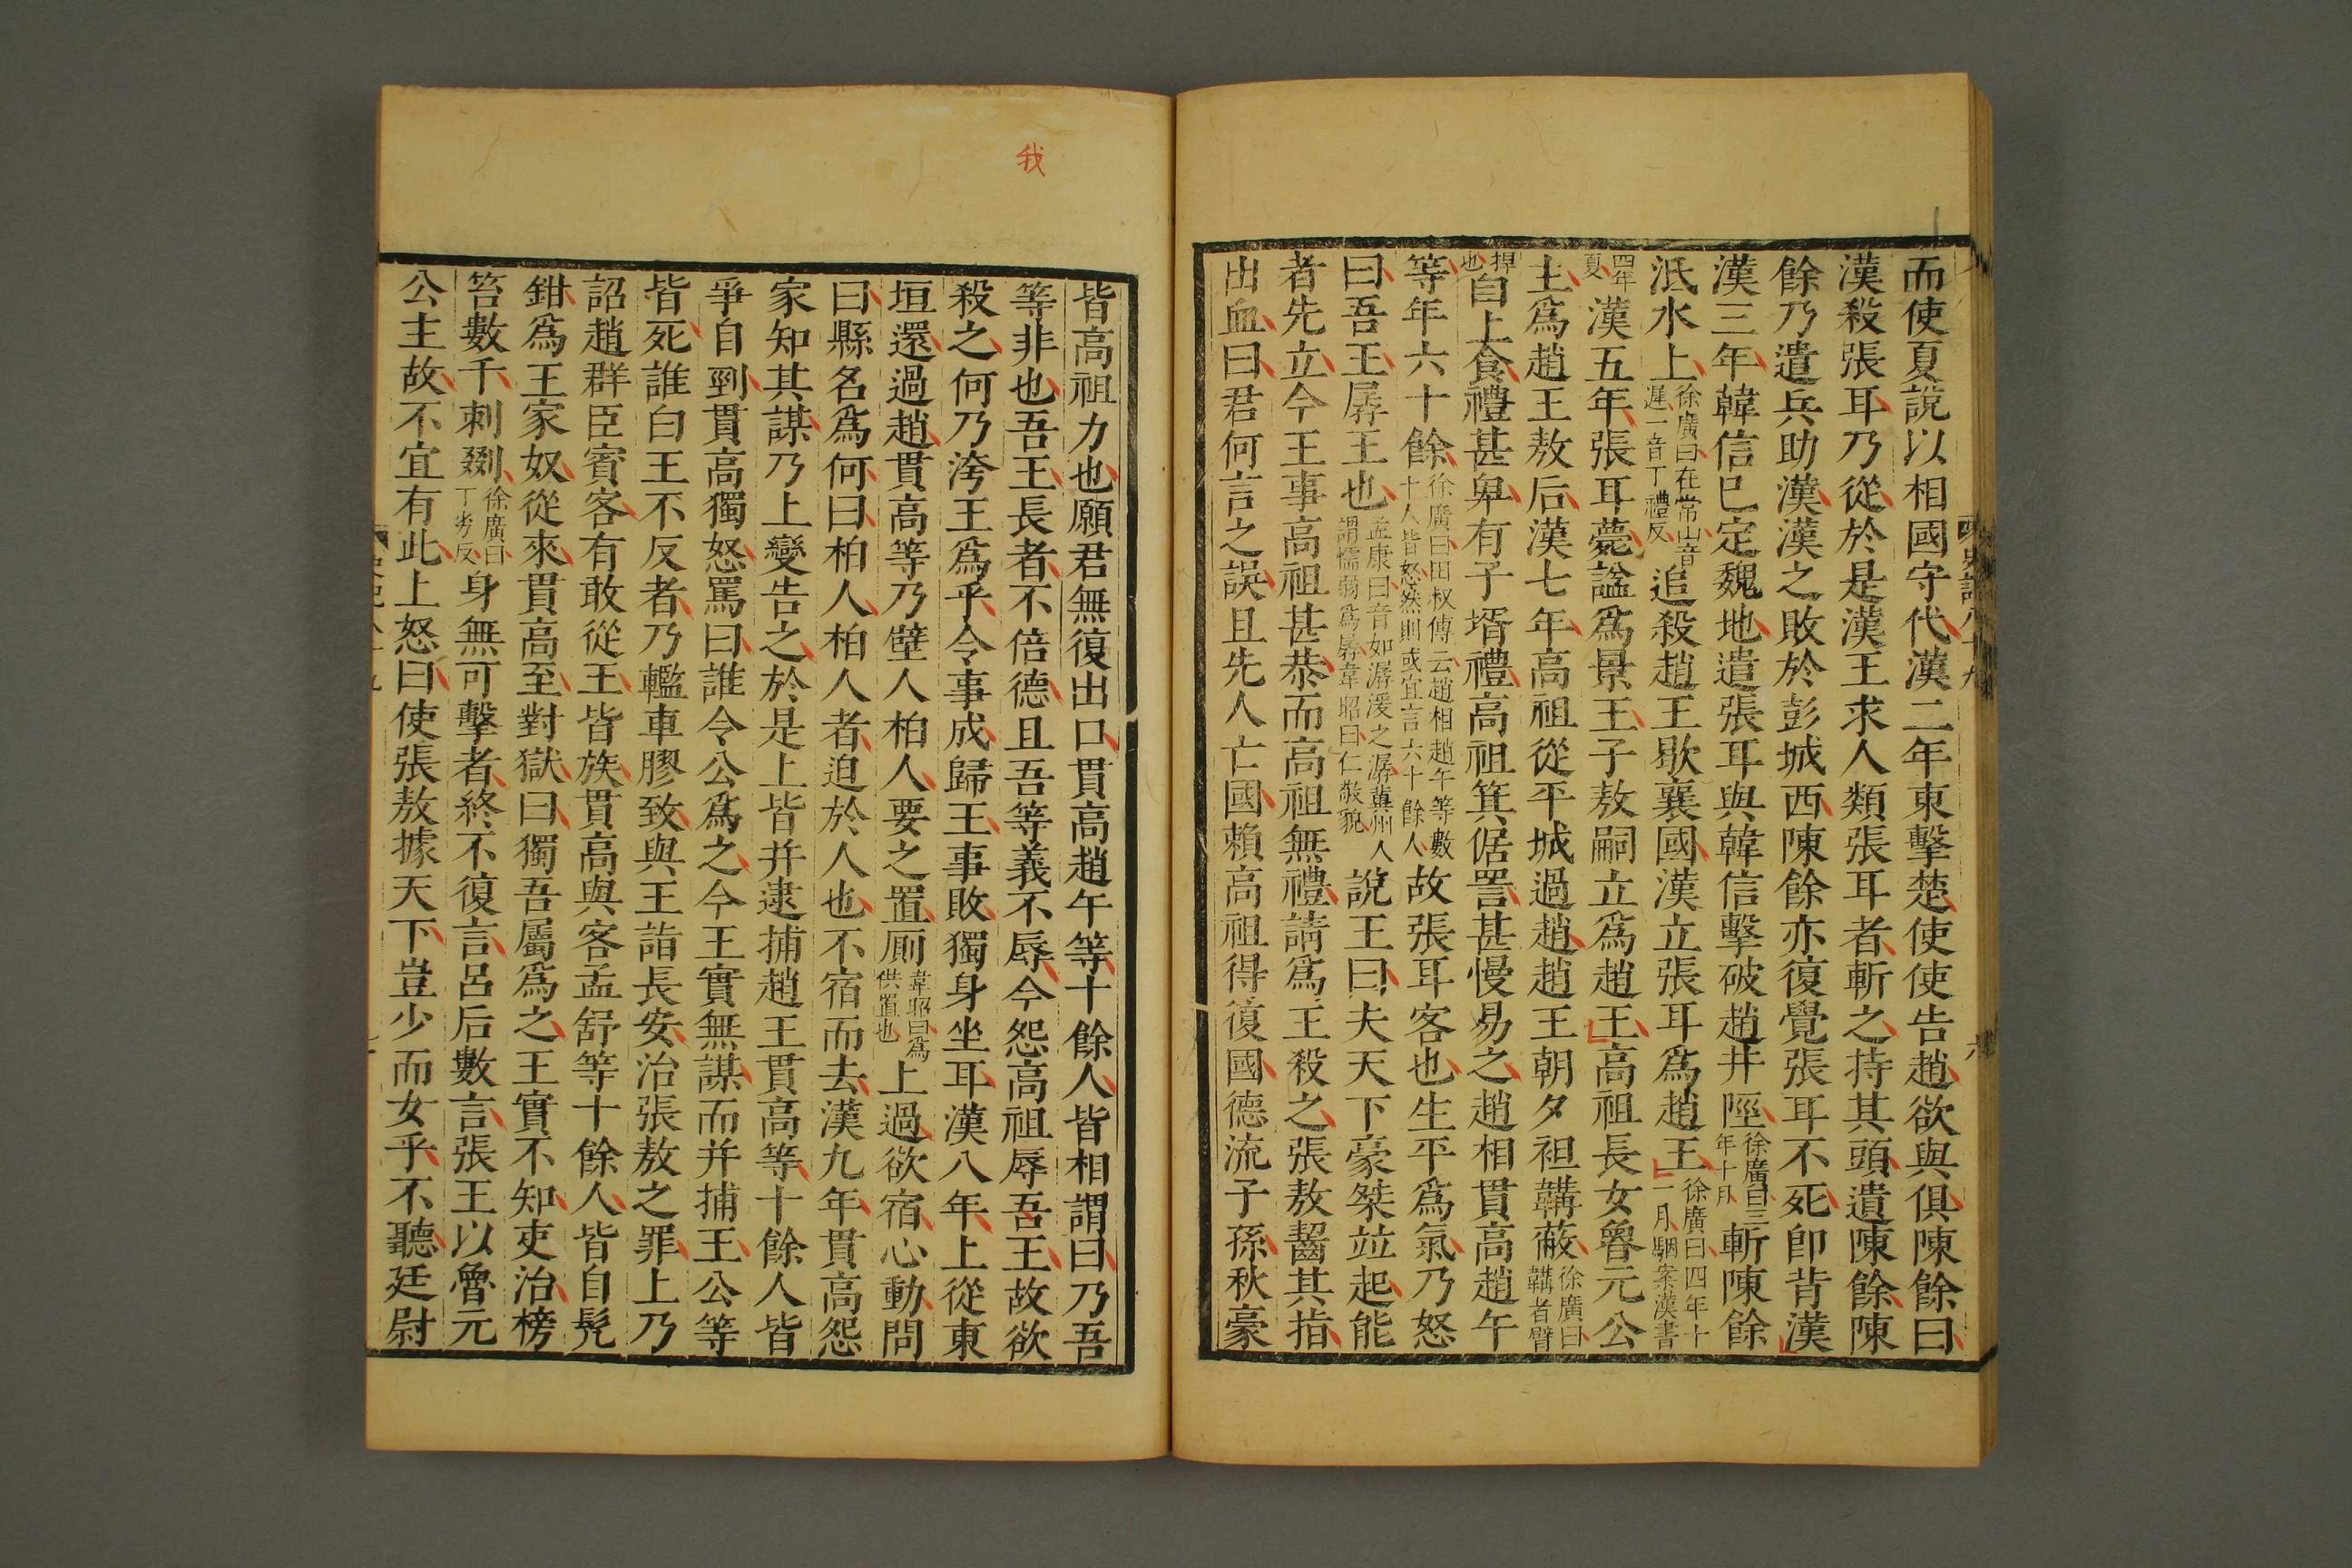 而使夏說以相國守代漢二年東擊楚使使告趙欲與俱陳餘曰
漢殺張耳乃從於是漢王求人類張耳者斬之持其頭遺陳餘陳
餘乃遣兵助漢漢之敗於彭城西陳餘亦復覺張耳不死卽背漢
漢三年韓信已定魏地遣張耳與韓信擊破趙井陘徐廣曰三年十月斬陳餘
泜水上徐廣曰在常山音遲一音丁禮反追殺趙王歇襄國漢立張耳爲趙王徐廣曰四年十一月駰案漢書
四年夏漢五年張耳薨諡爲景王子敖嗣立爲趙王高祖長女魯元公
主爲趙王敖后漢七年高祖從平城過趙趙王朝夕袒韝蔽徐廣曰韝者臂
捍也自上食禮甚卑有子壻禮高祖箕倨詈甚慢易之趙相貫高趙午
等年六十餘徐廣曰田叔傳云趙相趙午等數十人皆怒然則或宜言六十餘人故張耳客也生平爲氣乃怒
曰吾王孱王也孟康曰音如潺湲之潺冀州人謂懦弱爲孱韋昭曰仁敬貌說王曰夫天下豪桀竝起能
者先立今王事高祖甚恭而高祖無禮請爲王殺之張敖齧其指
出血曰君何言之誤且先人亡國賴高祖得復國德流子孫秋豪
史記八十九
六
我
皆高祖力也願君無復出口貫高趙午等十餘人皆相謂曰乃吾
等非也吾王長者不倍德且吾等義不辱今怨高祖辱吾王故欲
殺之何乃洿王爲乎令事成歸王事敗獨身坐耳漢八年上從東
垣還過趙貫高等乃壁人柏人要之置厠韋昭曰爲供置也上過欲宿心動問
曰縣名爲何曰柏人柏人者迫於人也不宿而去漢九年貫高怨
家知其謀乃上變告之於是上皆并逮捕趙王貫高等十餘人皆
爭自剄貫高獨怒罵曰誰令公爲之今王實無謀而并捕王公等
皆死誰白王不反者乃轞車膠致與王詣長安治張敖之罪上乃
詔趙群臣賓客有敢從王皆族貫高與客孟舒等十餘人皆自髡
鉗爲王家奴從來貫高至對獄曰獨吾屬爲之王實不知吏治榜
笞數千刺剟徐廣曰丁劣反身無可擊者終不復言呂后數言張王以魯元
公主故不宜有此上怒曰使張敖據天下豈少而女乎不聽廷尉